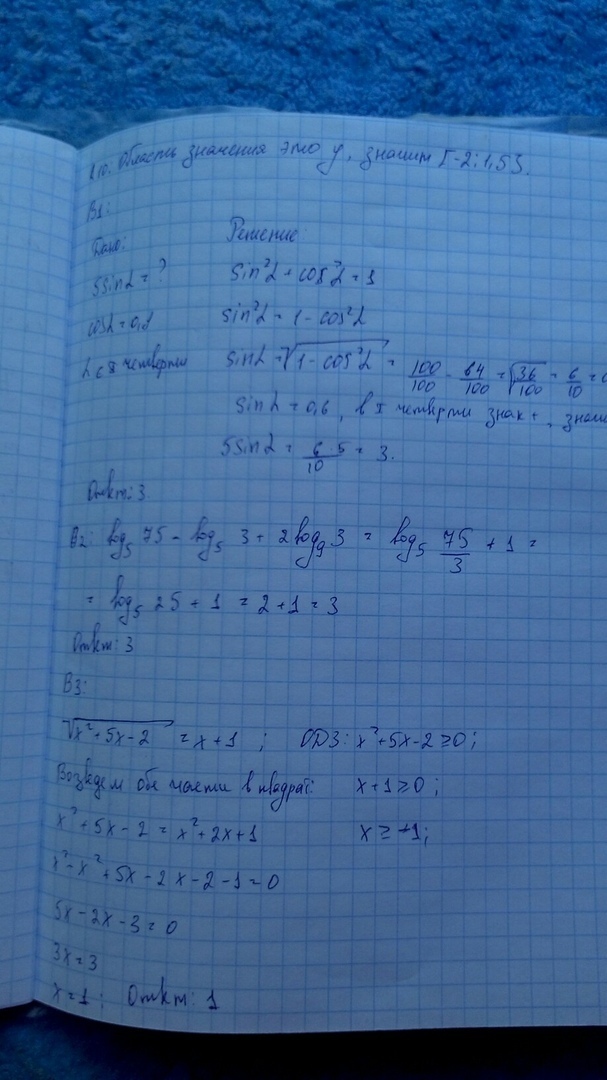 А10. Область значения это y, значит [-2; 1,5].
В1:
Дано: Решение:
5sinα = ? sin²α + cos²α = 1
cosα = 0,8 sin²α = 1 - cos²α
α ∈ I четверти sinα = √(1 - cos²α) = 100/100 - 64/100 = √(36/100) = 6/10 =
sinα = 0,6, в I четверти знак +,
5sinα = 6·5/10 = 3.
Ответ: 3
В2: log₅ 75 - log₅ 3 + 2log₉ 3 = log₅ 75/3 + 1 =
= log₅ 25 + 1 = 2 + 1 = 3
Ответ: 3
В3:
√(x² + 5x - 2) = x + 1 ; ОДЗ: x² + 5x - 2 ≥ 0;
Возведем обе части в квадрат: x + 1 ≥ 0;
x² + 5x - 2 = x² + 2x + 1 x ≥ -1;
x² - x² + 5x - 2x - 2 - 1 = 0
5x - 2x - 3 = 0
3x = 3
x = 1; Ответ: 1